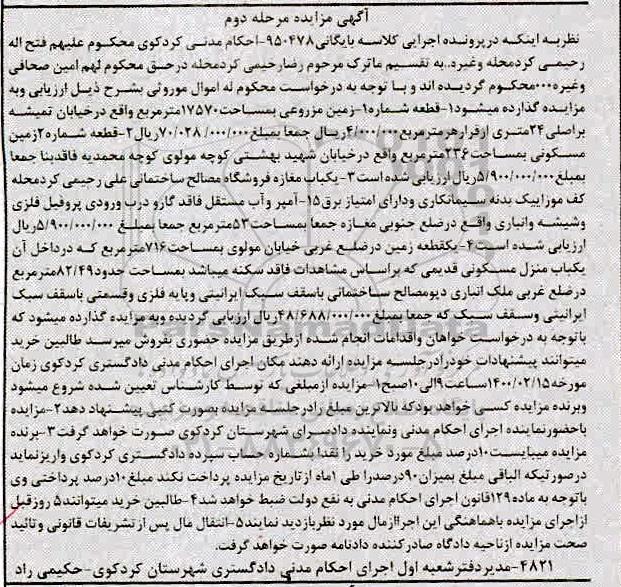 آگهی مزایده مرحله دوم
نظربه اینکه درپرونده اجرایی کلاسه بایگانی۹۵۰۴۷۸-احکام مدنی کردکوی محکوم علیهم فتح اله
رحیمی کردمحله وغیره..به تقسیم ماترک مرحوم رضارحیمی کردمحله درحق محکوم لهم امین صحافی
وغیره۰۰۰محکوم گردیده اند و با توجه به درخواست محکوم له اموال موروثی بشرح ذیل ارزیابی وبه
مزایده گذارده میشود۱-قطعه شماره۱-زمین مزروعی بمساحت۱۷۵۷۰مترمربع واقع درخیابان تمیشه
براصلی۲۴متری ازقرارهرمترمربع۴/۰۰۰/۰۰۰ریال جمعا بمبلغ۷۰/۰۲۸/۰۰۰/۰۰۰ریال۲-قطعه شماره۲زمین
مسکونی بمساحت۲۳۶مترمربع واقع درخیابان شهید بهشتی کوچه مولوی کوچه محمدیه فاقدبنا جمعا
بمبلغ۵/۹۰۰/۰۰۰/۰۰۰ریال ارزیابی شده است۳-یکباب مغازه فروشگاه مصالح ساختمانی علی رحیمی کردمحله
کف موزاییک بدنه سیمانکاری ودارای امتیاز برق۱۵-آمپر وآب مستقل فاقد گازو درب ورودی پروفیل فلزی
وشیشه وانباری واقع درضلع جنوبی مغازه جمعا بمساحت۵۳مترمربع جمعا بمبلغ ۵/۹۰۰/۰۰۰/۰۰۰ریال
ارزیابی شده است۴-یکقطعه زمین درضلع غربی خیابان مولوی بمساحت۷۱۶مترمربع که درداخل آن
یکباب منزل مسکونی قدیمی که براساس مشاهدات فاقد سکنه میباشد بمساحت حدود۸۲/۴۹مترمربع
درضلع غربی ملک انباری دپومصالح ساختمانی باسقف سبک ایرانیتی وپایه فلزی وقسمتی باسقف سبک
ایرانیتی وسقف سبک که جمعا بمبلغ۴۸/۶۸۸/۰۰۰/۰۰۰ریال ارزیابی گردیده وبه مزایده گذارده میشود که
باتوجه به درخواست خواهان واقدامات انجام شده ازطریق مزایده حضوری بفروش میرسد طالبین خرید
میتوانند پیشنهادات خودرادرجلسه مزایده ارائه دهند مکان اجرای احکام مدنی دادگستری کردکوی زمان
مورخه۱۴۰۰/۰۲/۱۵ساعت۹الی۱۰صبح۱-مزایده ازمبلغی که توسط کارشناس تعیین شده شروع میشود
وبرنده مزایده کسی خواهد بودکه بالاترین مبلغ رادرجلسه مزایده بصورت کتبی پیشنهاد دهد۲-مزایده
باحضورنماینده اجرای احکام مدنی ونماینده دادسرای شهرستان کردکوی صورت خواهد گرفت۳-برنده
مزایده میبایست۱۰درصد مبلغ مورد خرید را نقدا بشماره حساب سپرده دادگستری کردکوی واریزنماید
درصورتیکه الباقی مبلغ بمیزان۹۰درصدرا طی ۱ماه ازتاریخ مزایده پرداخت نکند مبلغ۱۰درصد پرداختی وی
باتوجه به ماده۱۲۹قانون اجرای احکام مدنی به نفع دولت ضبط خواهد شد۴-طالبین خرید میتوانند۵ روزقبل
ازاجرای مزایده باهماهنگی این اجراازمال مورد نظربازدید نمایند۵-انتقال مال پس ازتشریفات قانونی وتائید
صحت مزایده ازناحیه دادگاه صادرکننده دادنامه صورت خواهد گرفت.
۴۸۲۱-مدیردفترشعبه اول اجرای احکام مدنی دادگستری شهرستان کردکوی-حکیمی راد